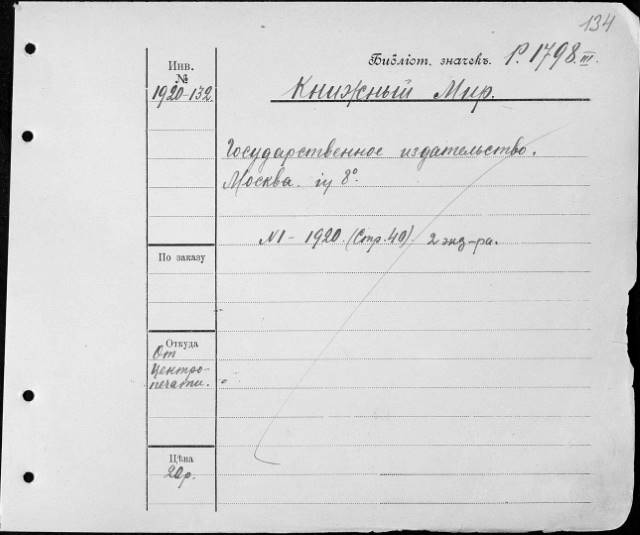 134
Библіот. значекъ. Р. 1798 III.
Инв.
№
1920-132.
Книжный Мир.
Государственное издательство.
Москва. in 8°.
№1 - 1920. (Стр. 40). 2 экз-ра.
По заказу
Откуда
От
Центро-
печати.
Цѣна
20 р.